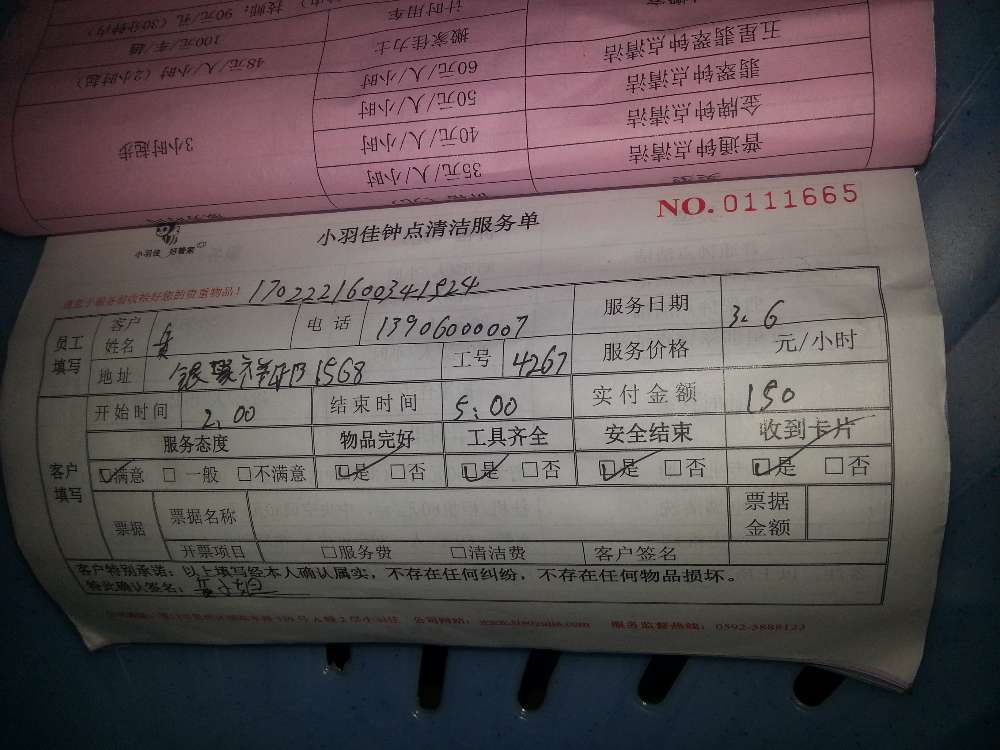 计时用车
技师：90元/孔/（30分钟内）
搬家佳力士
100元/车/趟
48元/人/小时（2小时起）
五星翡翠钟点清洁
60元/人/小时
翡翠钟点清洁
50元/人/小时
金牌钟点清洁
40元/人/小时
3小时起步
普通钟点清洁
35元/人/小时
NO. 0111665
小羽佳 好管家
小羽佳钟点清洁服务单
1702221600341924
员工填写
客户姓名
电 话 13906000007
服务日期 3.6
地址 1568
工号 4267
服务价格 元/小时
客户填写
开始时间 2.00
结束时间 5:00
实付金额 150
服务态度 物品完好 工具齐全 安全结束 收到卡片
满意 □ 一般 □不满意 是 □否 是 □否 是 □否 是 □否
票据 票据名称 票据金额
开票项目 □服务费 □清洁费 客户签名
客户特别承诺：以上填写经本人确认属实，不存在任何纠纷，不存在任何物品损坏。
特此确认签名：
服务监督热线：0592-5888123